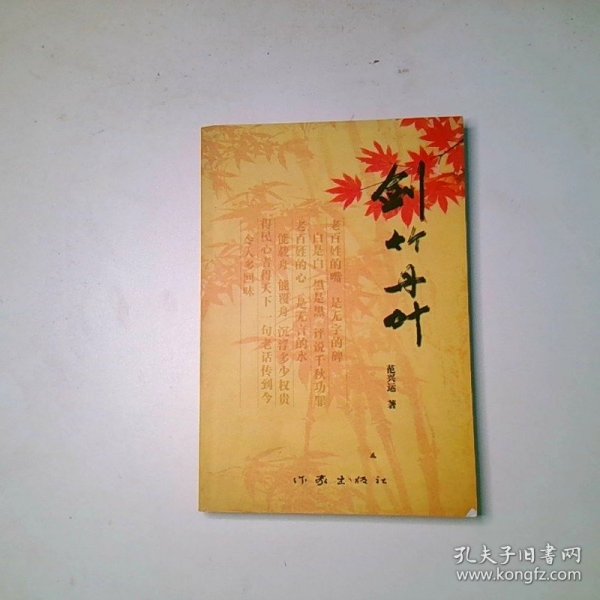 剑竹丹叶
范兴运 著
老百姓的嘴 是无字的碑
白是白 黑是黑 评说千秋功罪
老百姓的心 是无言的水
能载舟 能覆舟 沉浮多少权贵
得民心者得天下 一句老话传到今
令人多回味
作家出版社
孔夫子旧书网
www.kongfz.com